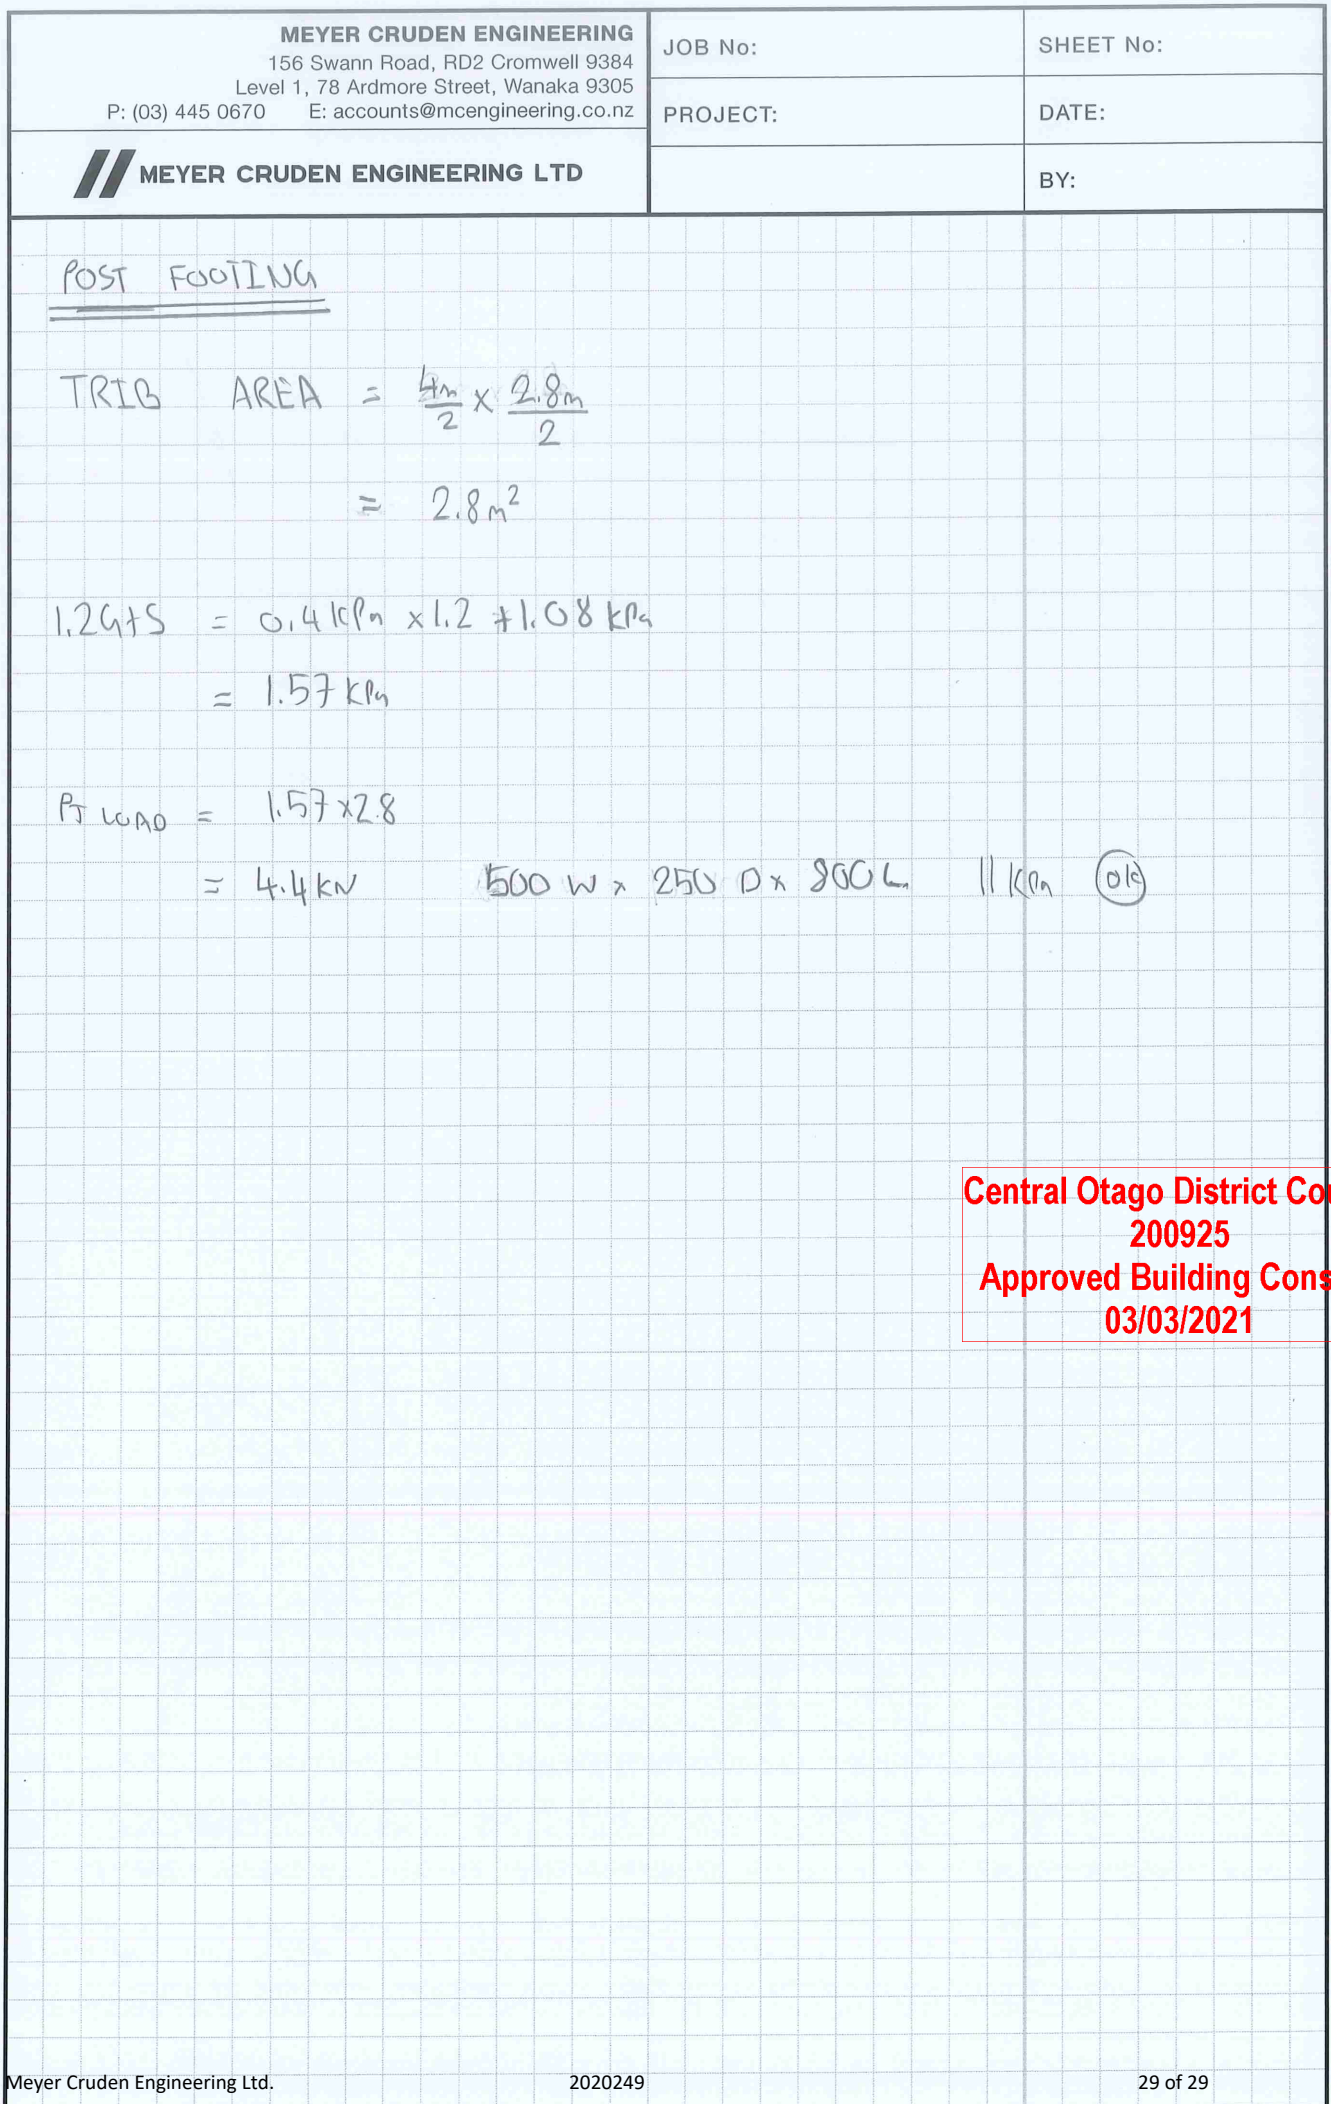 MEYER CRUDEN ENGINEERING
156 Swann Road, RD2 Cromwell 9384
Level 1, 78 Ardmore Street, Wanaka 9305
P: (03) 445 0670 E: accounts@mcengineering.co.nz
MEYER CRUDEN ENGINEERING LTD
JOB No:
SHEET No:
PROJECT:
DATE:
BY:
POST FOOTING
TRIB AREA = 4m/2 x 2.8m/2
= 2.8m²
1.2G+S = 0.4 kPa x 1.2 + 1.08 kPa
= 1.57 kPa
PT LOAD = 1.57 x 2.8
= 4.4 kN 500 W x 250 D x 800 L 11 kPa OK
Central Otago District Cou
200925
Approved Building Cons
03/03/2021
Meyer Cruden Engineering Ltd. 2020249 29 of 29